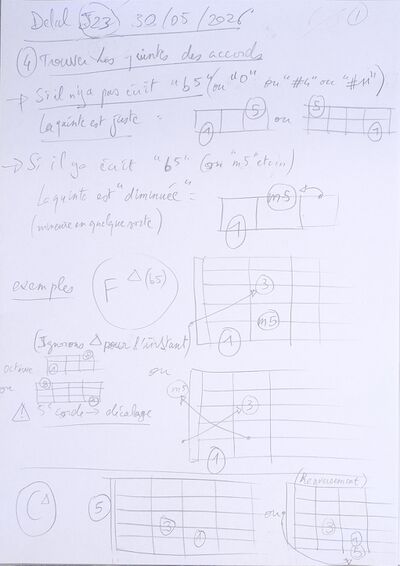 Delal J23 30/05/2026
1
④ Trouver les quintes des accords
→ S'il n'y a pas écrit "b5" (ou "0" ou "#4" ou "#11")
La quinte est juste = 1 5 ou 5 1
→ Si il y a écrit "b5" (ou "m5" etc...)
La quinte est "diminuée" = 1 m5
(mineure en quelque sorte)
exemples F Δ(b5) 3 m5 1
(Ignorons Δ pour l'instant)
octave
ou
ou m5 3 1
⚠ 5e corde → décalage
(Renversement)
CΔ 5 3 1 ou 3 1 5 x